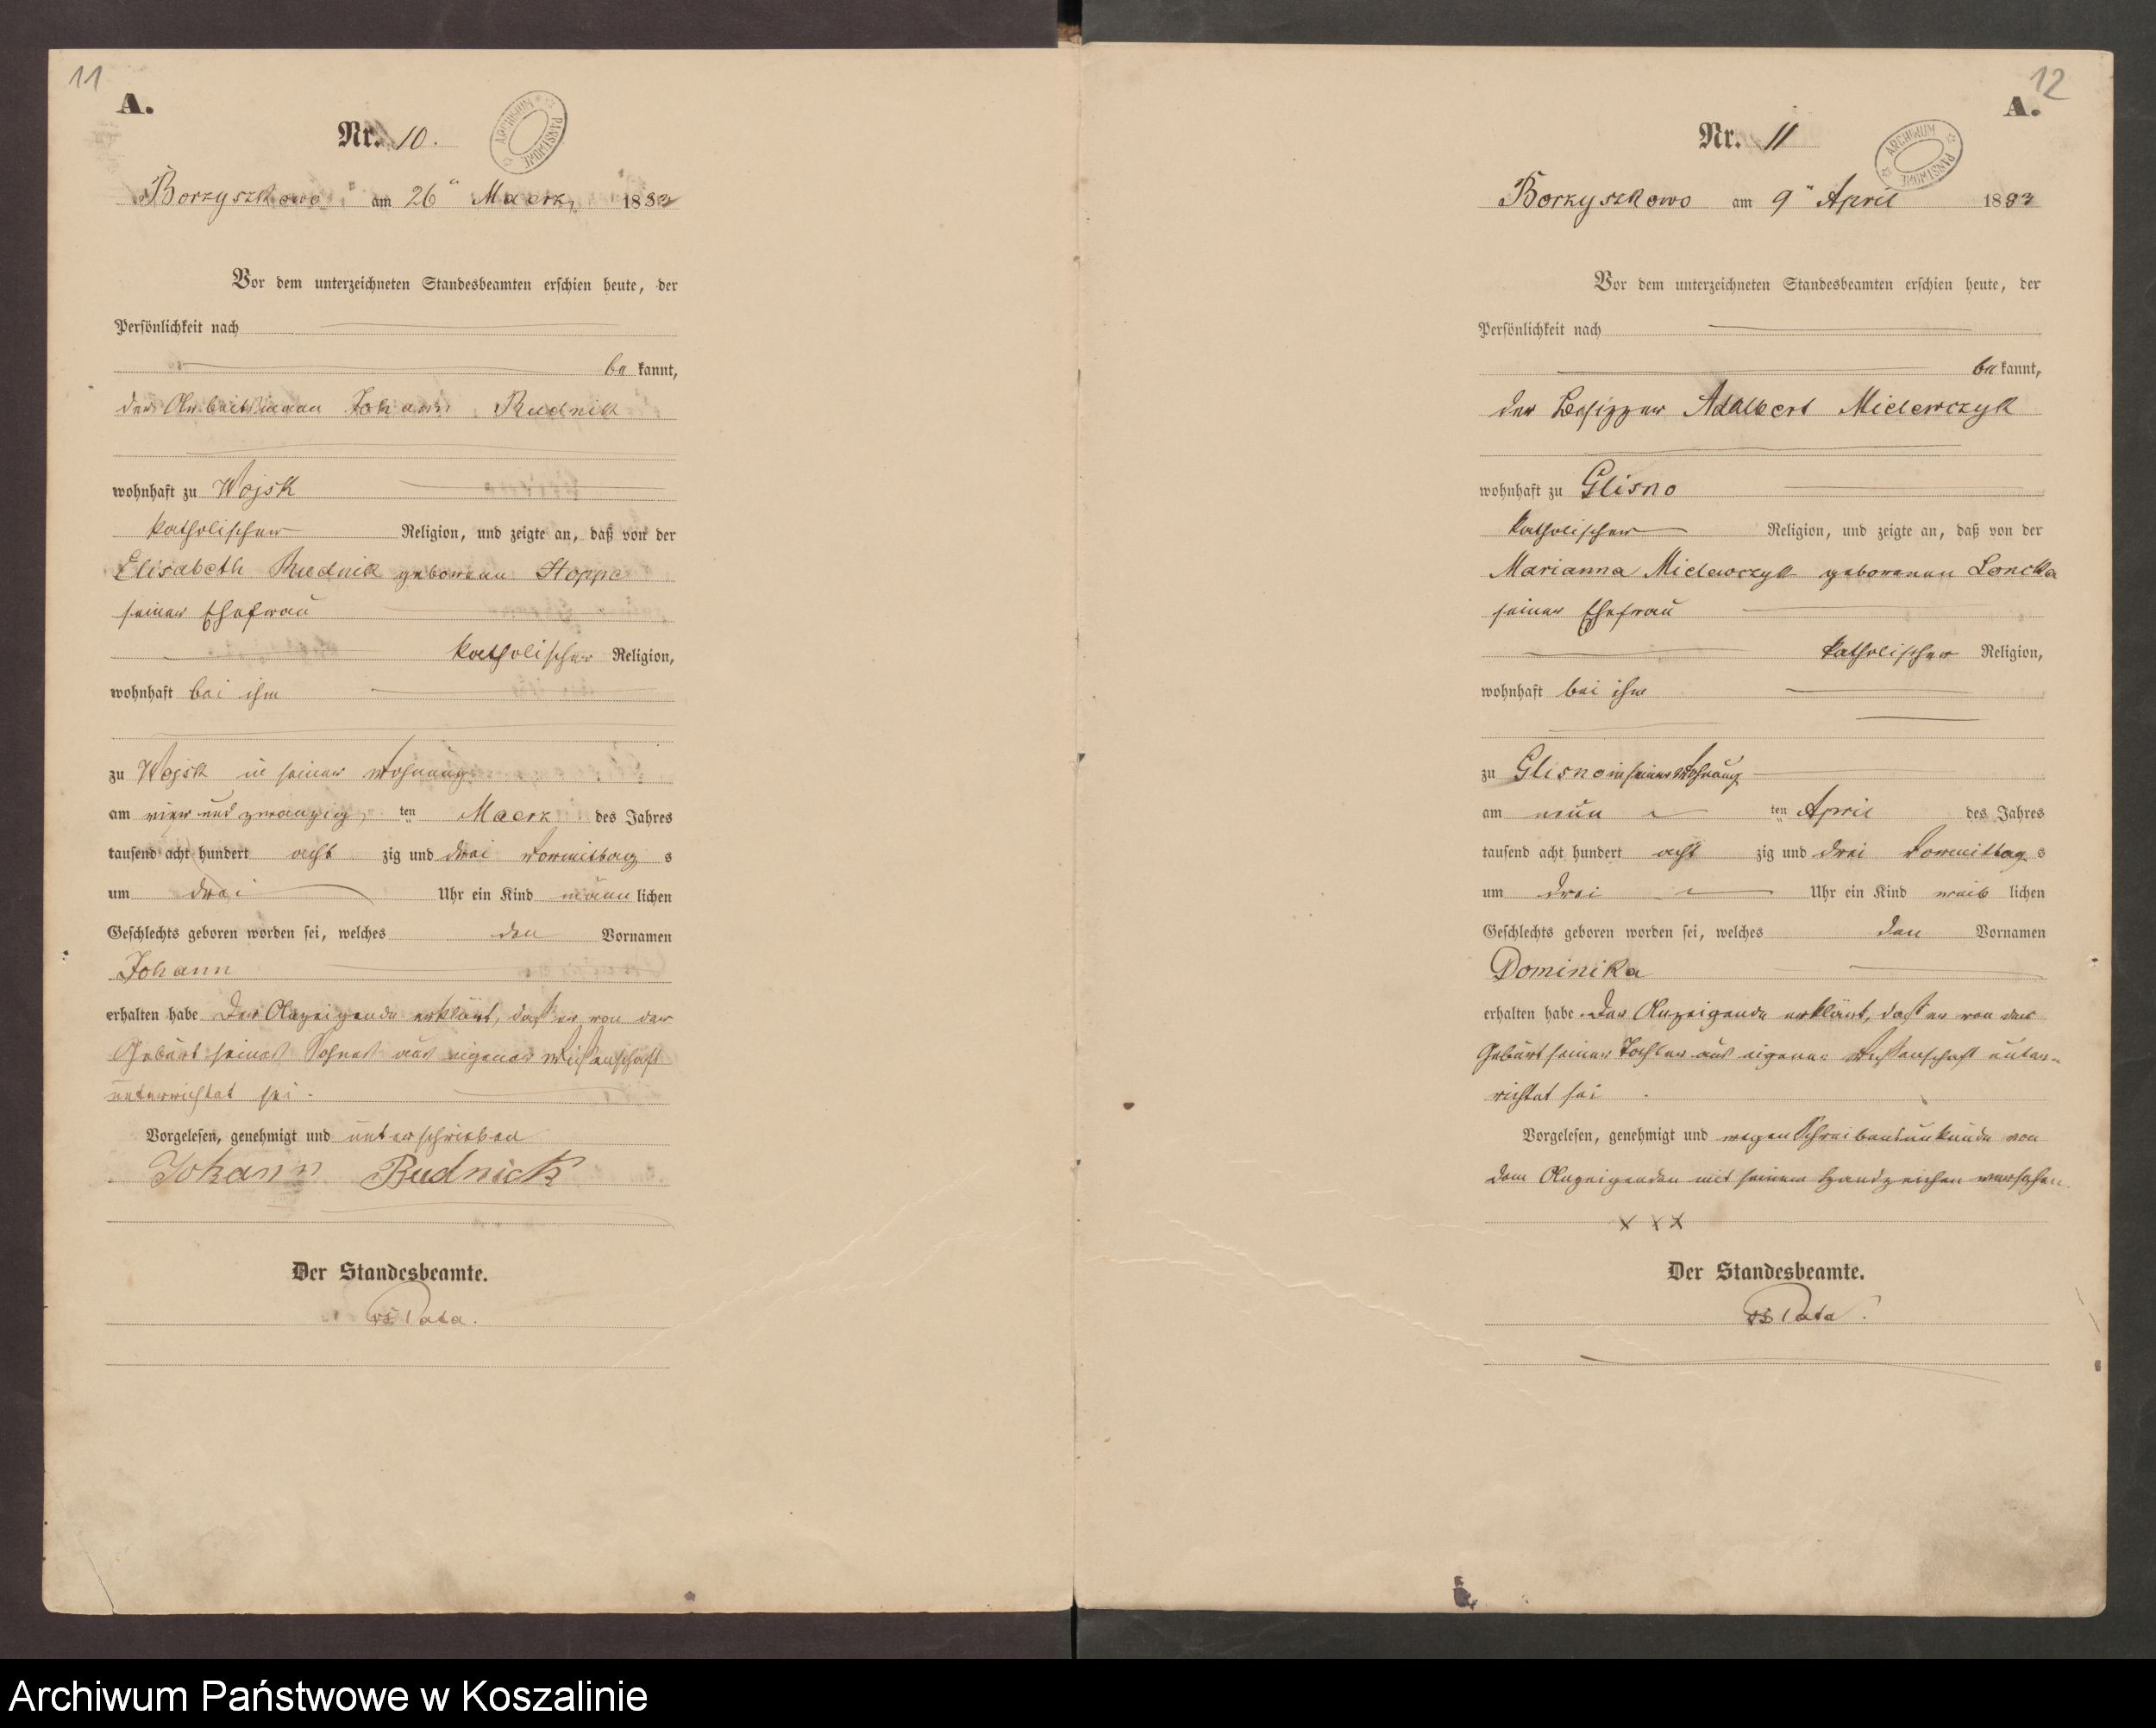 11
A.
Nr. 10.
ARCHIWUM PAŃSTWOWE
Borzyszkowo am 26" Maerz 1883
Vor dem unterzeichneten Standesbeamten erschien heute, der
Persönlichkeit nach
be kannt,
der Arbeitsmann Johann Rudnik
wohnhaft zu Wojsk
katholischer Religion, und zeigte an, daß von der
Elisabeth Rudnik geborenen Hoppe
seiner Ehefrau
katholischer Religion,
wohnhaft bei ihm
zu Wojsk in seiner Wohnung
am vier und zwanzig ten Maerz des Jahres
tausend acht hundert acht zig und drei Vormittag s
um drei Uhr ein Kind männ lichen
Geschlechts geboren worden sei, welches den Vornamen
Johann
erhalten habe Der Anzeigende erklärt, daß er von der
Geburt seines Sohnes aus eigener Wissenschaft
unterrichtet sei.
Vorgelesen, genehmigt und unterschrieben
Johann Rudnick
Der Standesbeamte.
Pata.
12
A.
Nr. 11
ARCHIWUM PAŃSTWOWE
Borzyszkowo am 9" April 1883
Vor dem unterzeichneten Standesbeamten erschien heute, der
Persönlichkeit nach
be kannt,
der Besitzer Adalbert Midewczyk
wohnhaft zu Glisno
katholischer Religion, und zeigte an, daß von der
Marianna Midewczyk geborenen Loncka
seiner Ehefrau
katholischer Religion,
wohnhaft bei ihm
zu Glisno in seiner Wohnung
am neun ten April des Jahres
tausend acht hundert acht zig und drei Vormittag s
um drei Uhr ein Kind weib lichen
Geschlechts geboren worden sei, welches den Vornamen
Dominika
erhalten habe. Der Anzeigende erklärt, daß er von der
Geburt seiner Tochter aus eigener Wissenschaft unter-
richtet sei.
Vorgelesen, genehmigt und wegen Schreibensunkunde von
dem Anzeigenden mit seinem Handzeichen versehen.
x x x
Der Standesbeamte.
Pata.
Archiwum Państwowe w Koszalinie